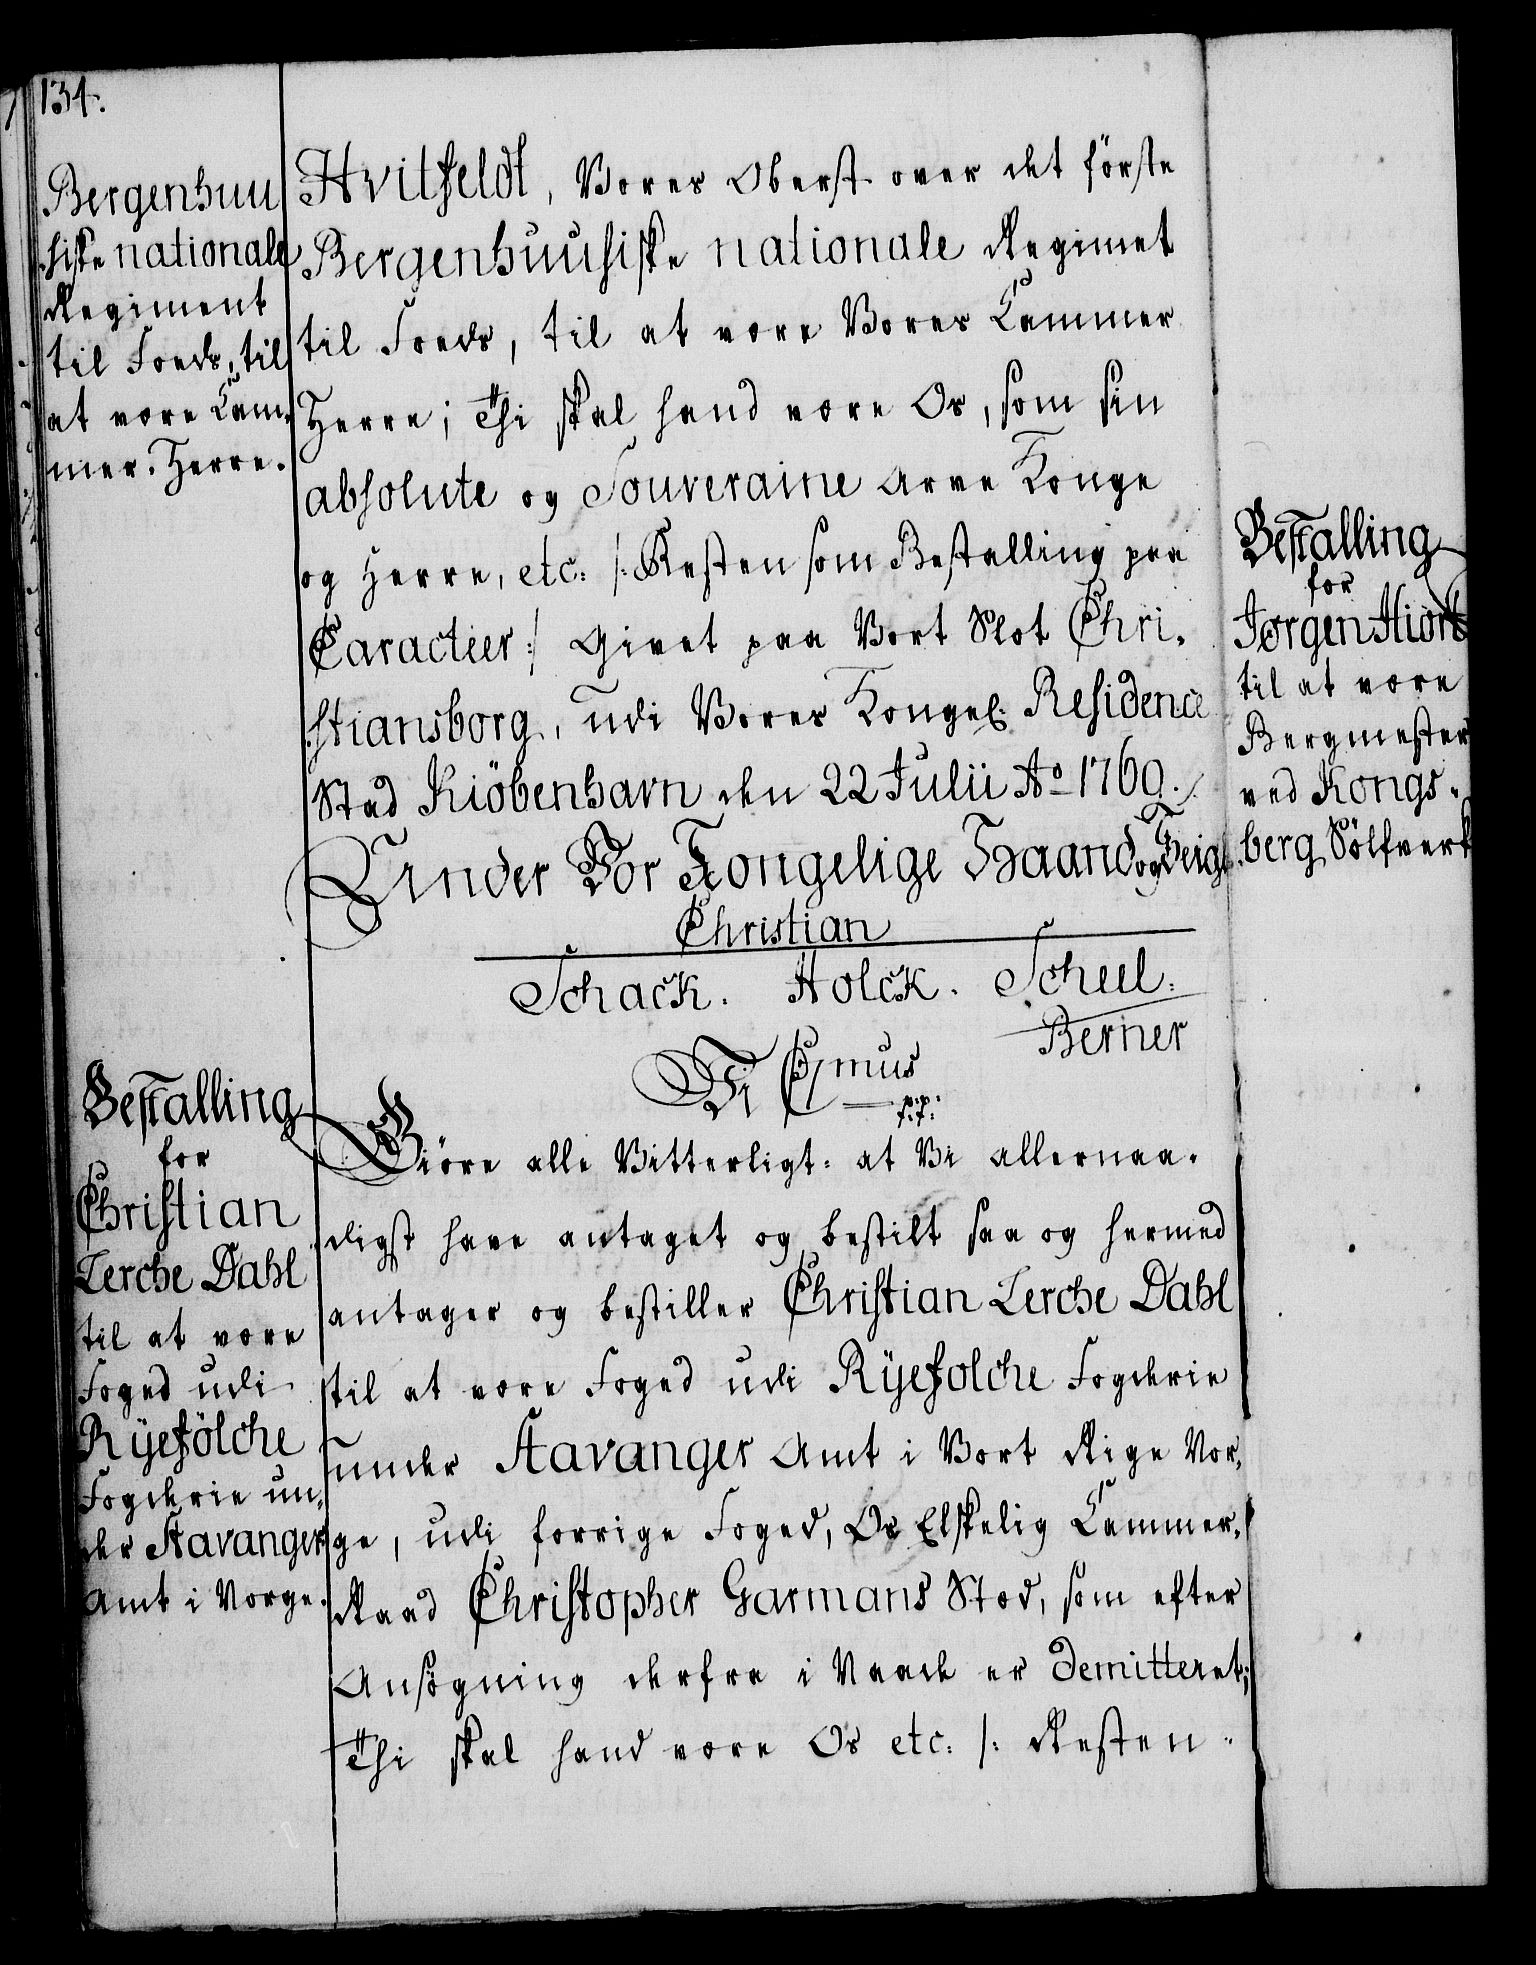 134.
Bergenhuu
siske nationale
Regiment
til Foeds, til
at være Cam-
mer-Herre.
Hvitfeldt, Vores Oberst over det förste
Bergenhuusiske nationale Regimet
til Foeds, til at være Vores Cammer
Herre; Thi skal hand være Os, som sin
absolute og Souveraine Arve Konge
og Herre, etc: /: Resten som Bestalling paa
Caracteer :/ Givet paa Vort Slot Chri-
stiansborg, udi Vores Kongel: Residence
Stad Kiöbenhavn den 22 Julii Ao 1769.
Under Vor Kongelige Haand og Seigl.
Christian
Schack. Holck. Scheel.
Berner
Vi C7mus
p:p:
t:t:
Bestalling
for
Christian
Lerche Dahl
til at være
Foged udi
Rÿefölche
Fogderie un-
der Stavanger
Amt i Norge.
Giöre alle Vitterligt: at Vi allernaa-
digst have antaget og bestilt saa og hermed
antager og bestiller Christian Lerche Dahl
til at være Foged udi Rÿefolche Fogderie
under Stavanger Amt i Vort Rige Nor-
ge, udi forrige Foged, Os Elskelig Cammer-
Raad Christopher Garmans Stæd, som efter
Ansögning derfra i Naade er demitteret;
Thi skal hand være Os etc: /: Resten
Bestalling
for
Jørgen Hiort
til at være
Bergmester
ved Kongs-
berg Sölfverk